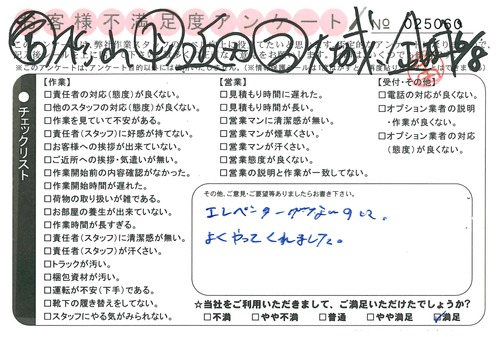 お客様不満足度アンケート № 025060
【作業】
□責任者の対応(態度)が良くない。
□他のスタッフの対応(態度)が良くない。
□作業を見ていて不安がある。
□責任者(スタッフ)に好感が持てない。
□お客様への挨拶が出来ていない。
□ご近所への挨拶・気遣いが無い。
□作業開始前の内容確認がなかった。
□作業開始時間が遅れた。
□荷物の取り扱いが雑である。
□お部屋の養生が出来ていない。
□作業時間が長すぎる。
□責任者(スタッフ)に清潔感が無い。
□責任者(スタッフ)が汗くさい。
□トラックが汚い。
□梱包資材が汚い。
□運転が不安(下手)である。
□靴下の履き替えをしてない。
□スタッフにやる気がみられない。
【営業】
□見積もり時間に遅れた。
□見積もり時間が長い。
□営業マンに清潔感が無い。
□営業マンが煙草くさい。
□営業マンが汗くさい。
□営業態度が良くない。
□営業の説明と作業が一致してない。
【受付・その他】
□電話の対応が良くない。
□オプション業者の説明
・作業が良くない。
□オプション業者の対応
(態度)が良くない。
チェックリスト
その他、ご意見・ご要望等ありましたらお書き下さい。
エレベーターがないのに、
よくやってくれました。
☆当社をご利用いただきまして、ご満足いただけたでしょうか?
□不満 □やや不満 □普通 □やや満足 ☑満足